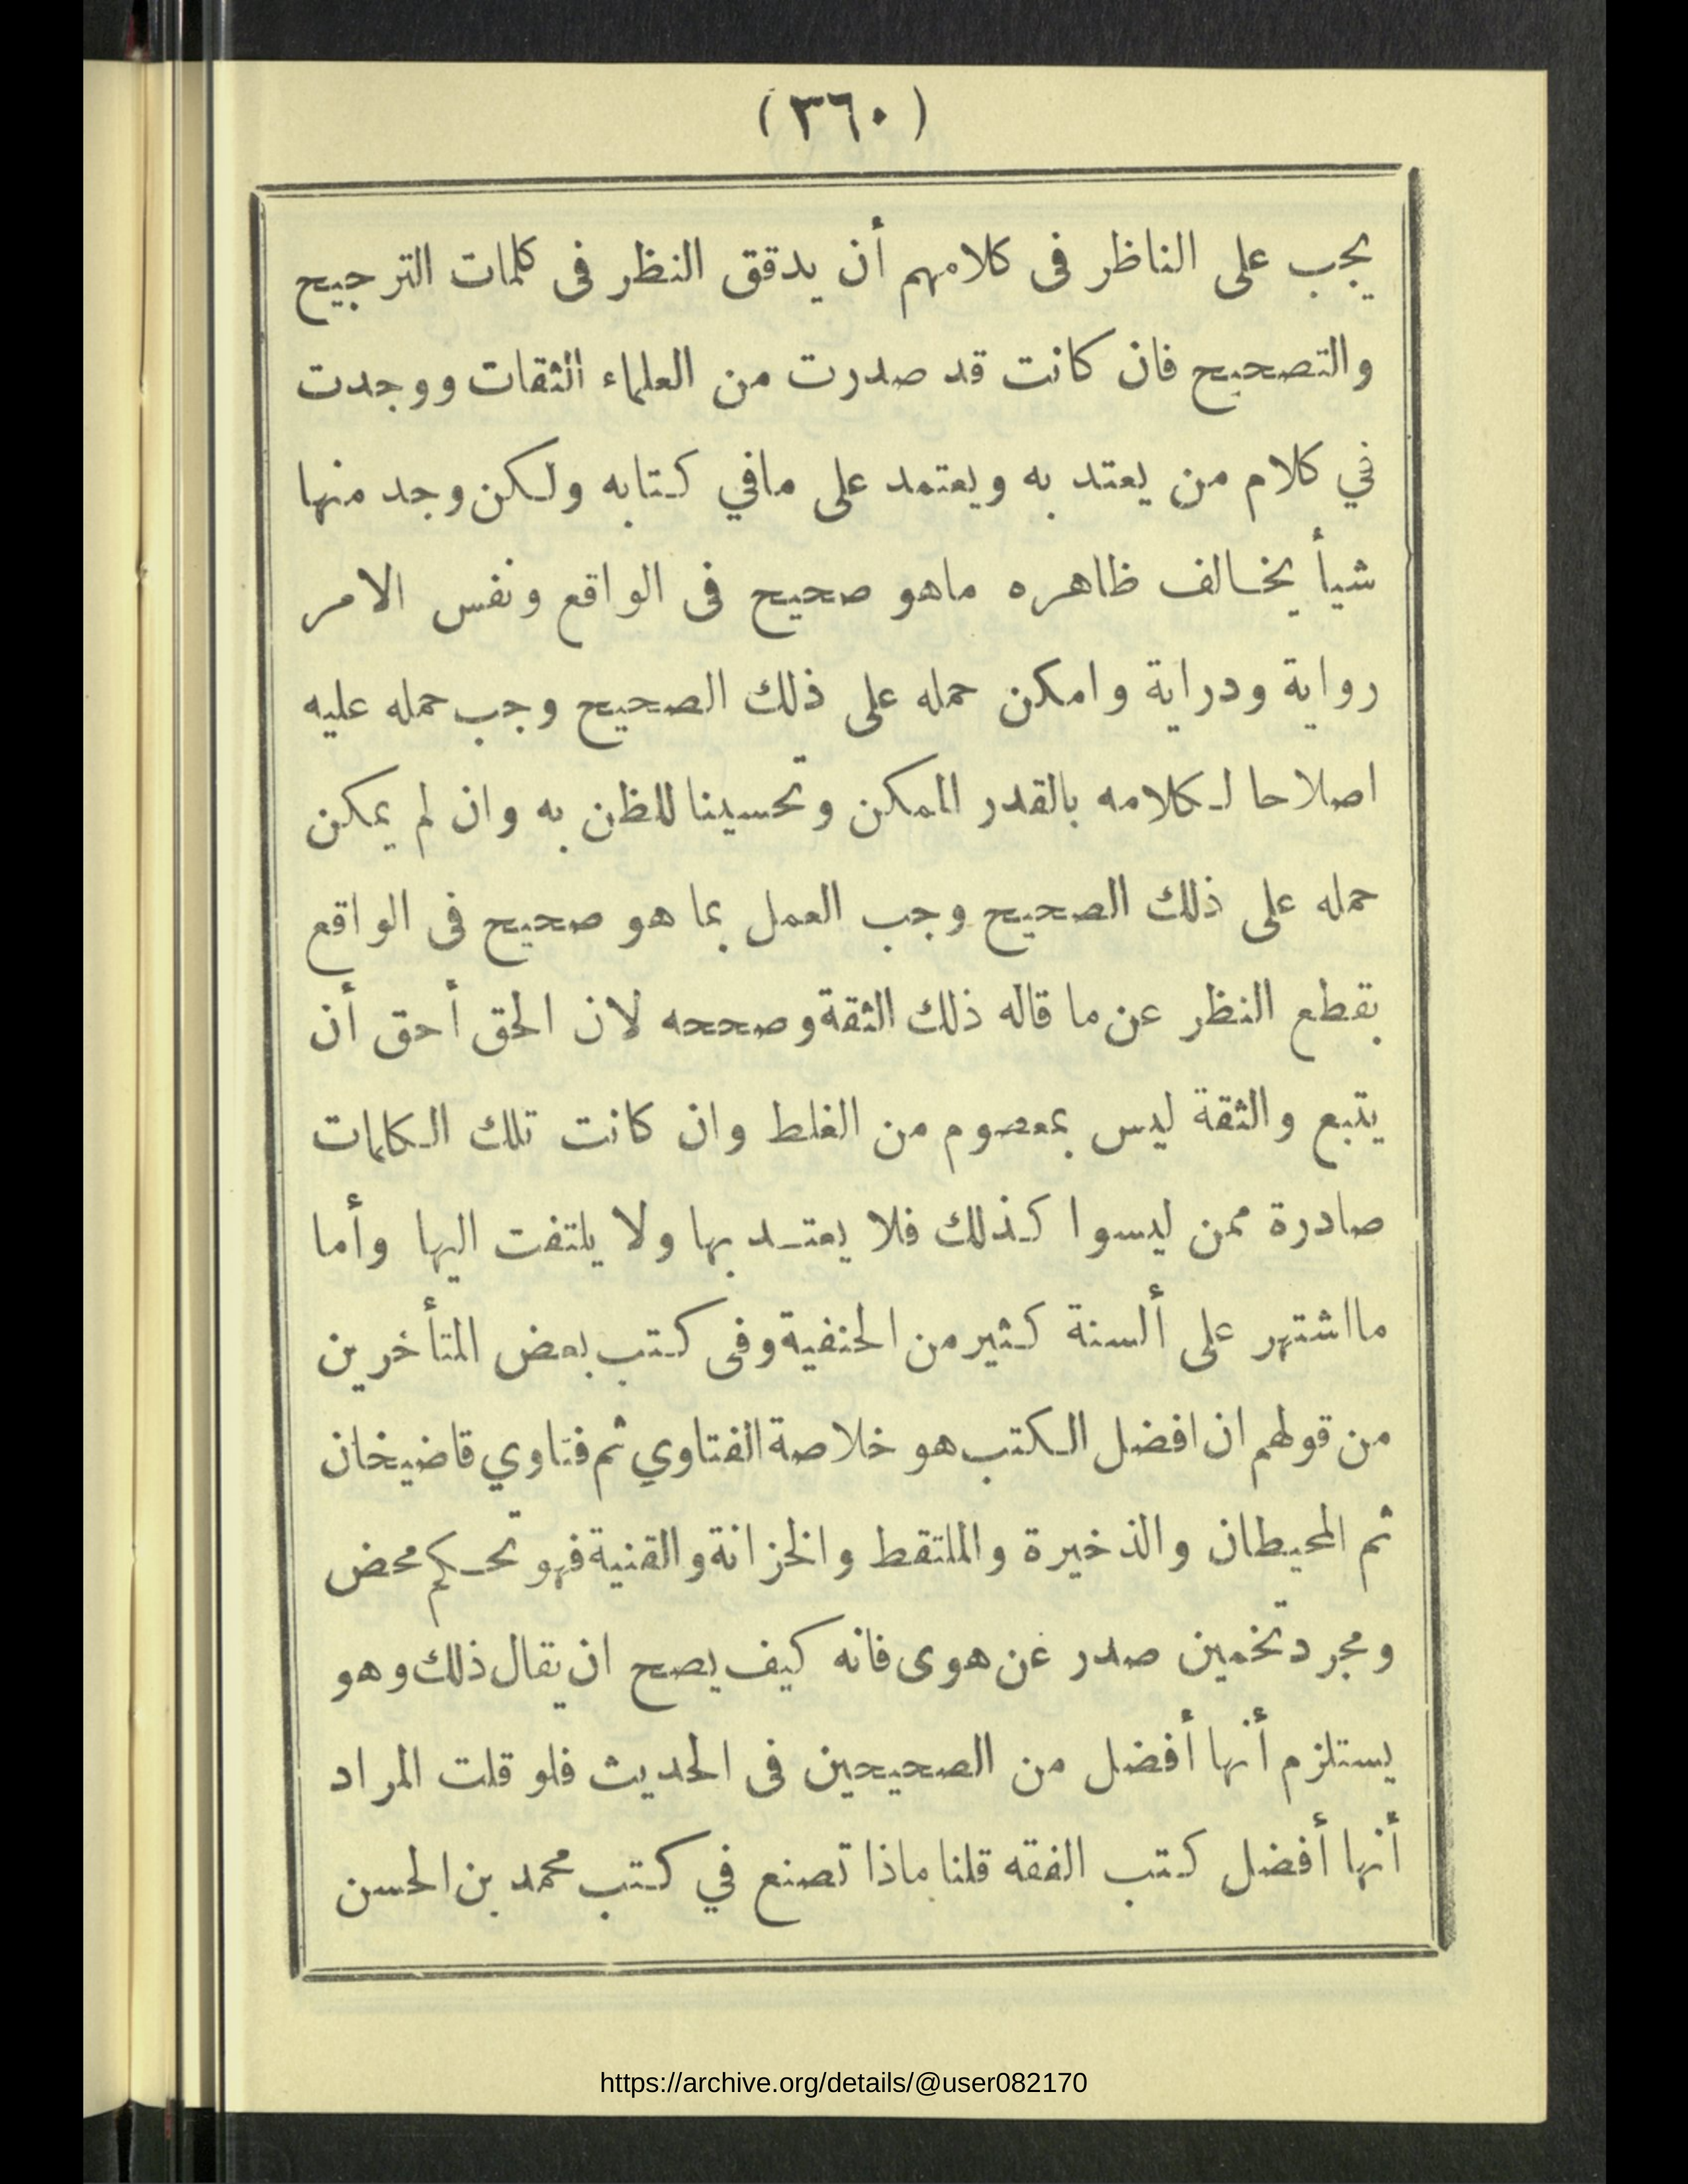 (٣٦٠)
يجب على الناظر فى كلامهم أن يدقق النظر فى كلمات الترجيح
والتصحيح فان كانت قد صدرت من العلماء الثقات ووجدت
في كلام من يعتد به ويعتمد على مافي كتابه ولكن وجد منها
شيأ يخالف ظاهره ماهو صحيح فى الواقع ونفس الامر
رواية ودراية وامكن حمله على ذلك الصحيح وجب حمله عليه
اصلاحا لكلامه بالقدر الممكن وتحسينا للظن به وان لم يمكن
حمله على ذلك الصحيح وجب العمل بما هو صحيح فى الواقع
بقطع النظر عن ما قاله ذلك الثقة وصححه لان الحق أحق أن
يتبع والثقة ليس بمعصوم من الغلط وان كانت تلك الكلمات
صادرة ممن ليسوا كذلك فلا يعتد بها ولا يلتفت اليها وأما
مااشتهر على ألسنة كثير من الحنفية وفى كتب بعض المتأخرين
من قولهم ان افضل الكتب هو خلاصة الفتاوي ثم فتاوي قاضيخان
ثم المحيطان والذخيرة والملتقط والخزانة والقنية فهو تحكم محض
ومجرد تخمين صدر عن هوى فانه كيف يصح ان يقال ذلك وهو
يستلزم أنها أفضل من الصحيحين فى الحديث فلو قلت المراد
أنها أفضل كتب الفقه قلنا ماذا تصنع في كتب محمد بن الحسن
https://archive.org/details/@user082170